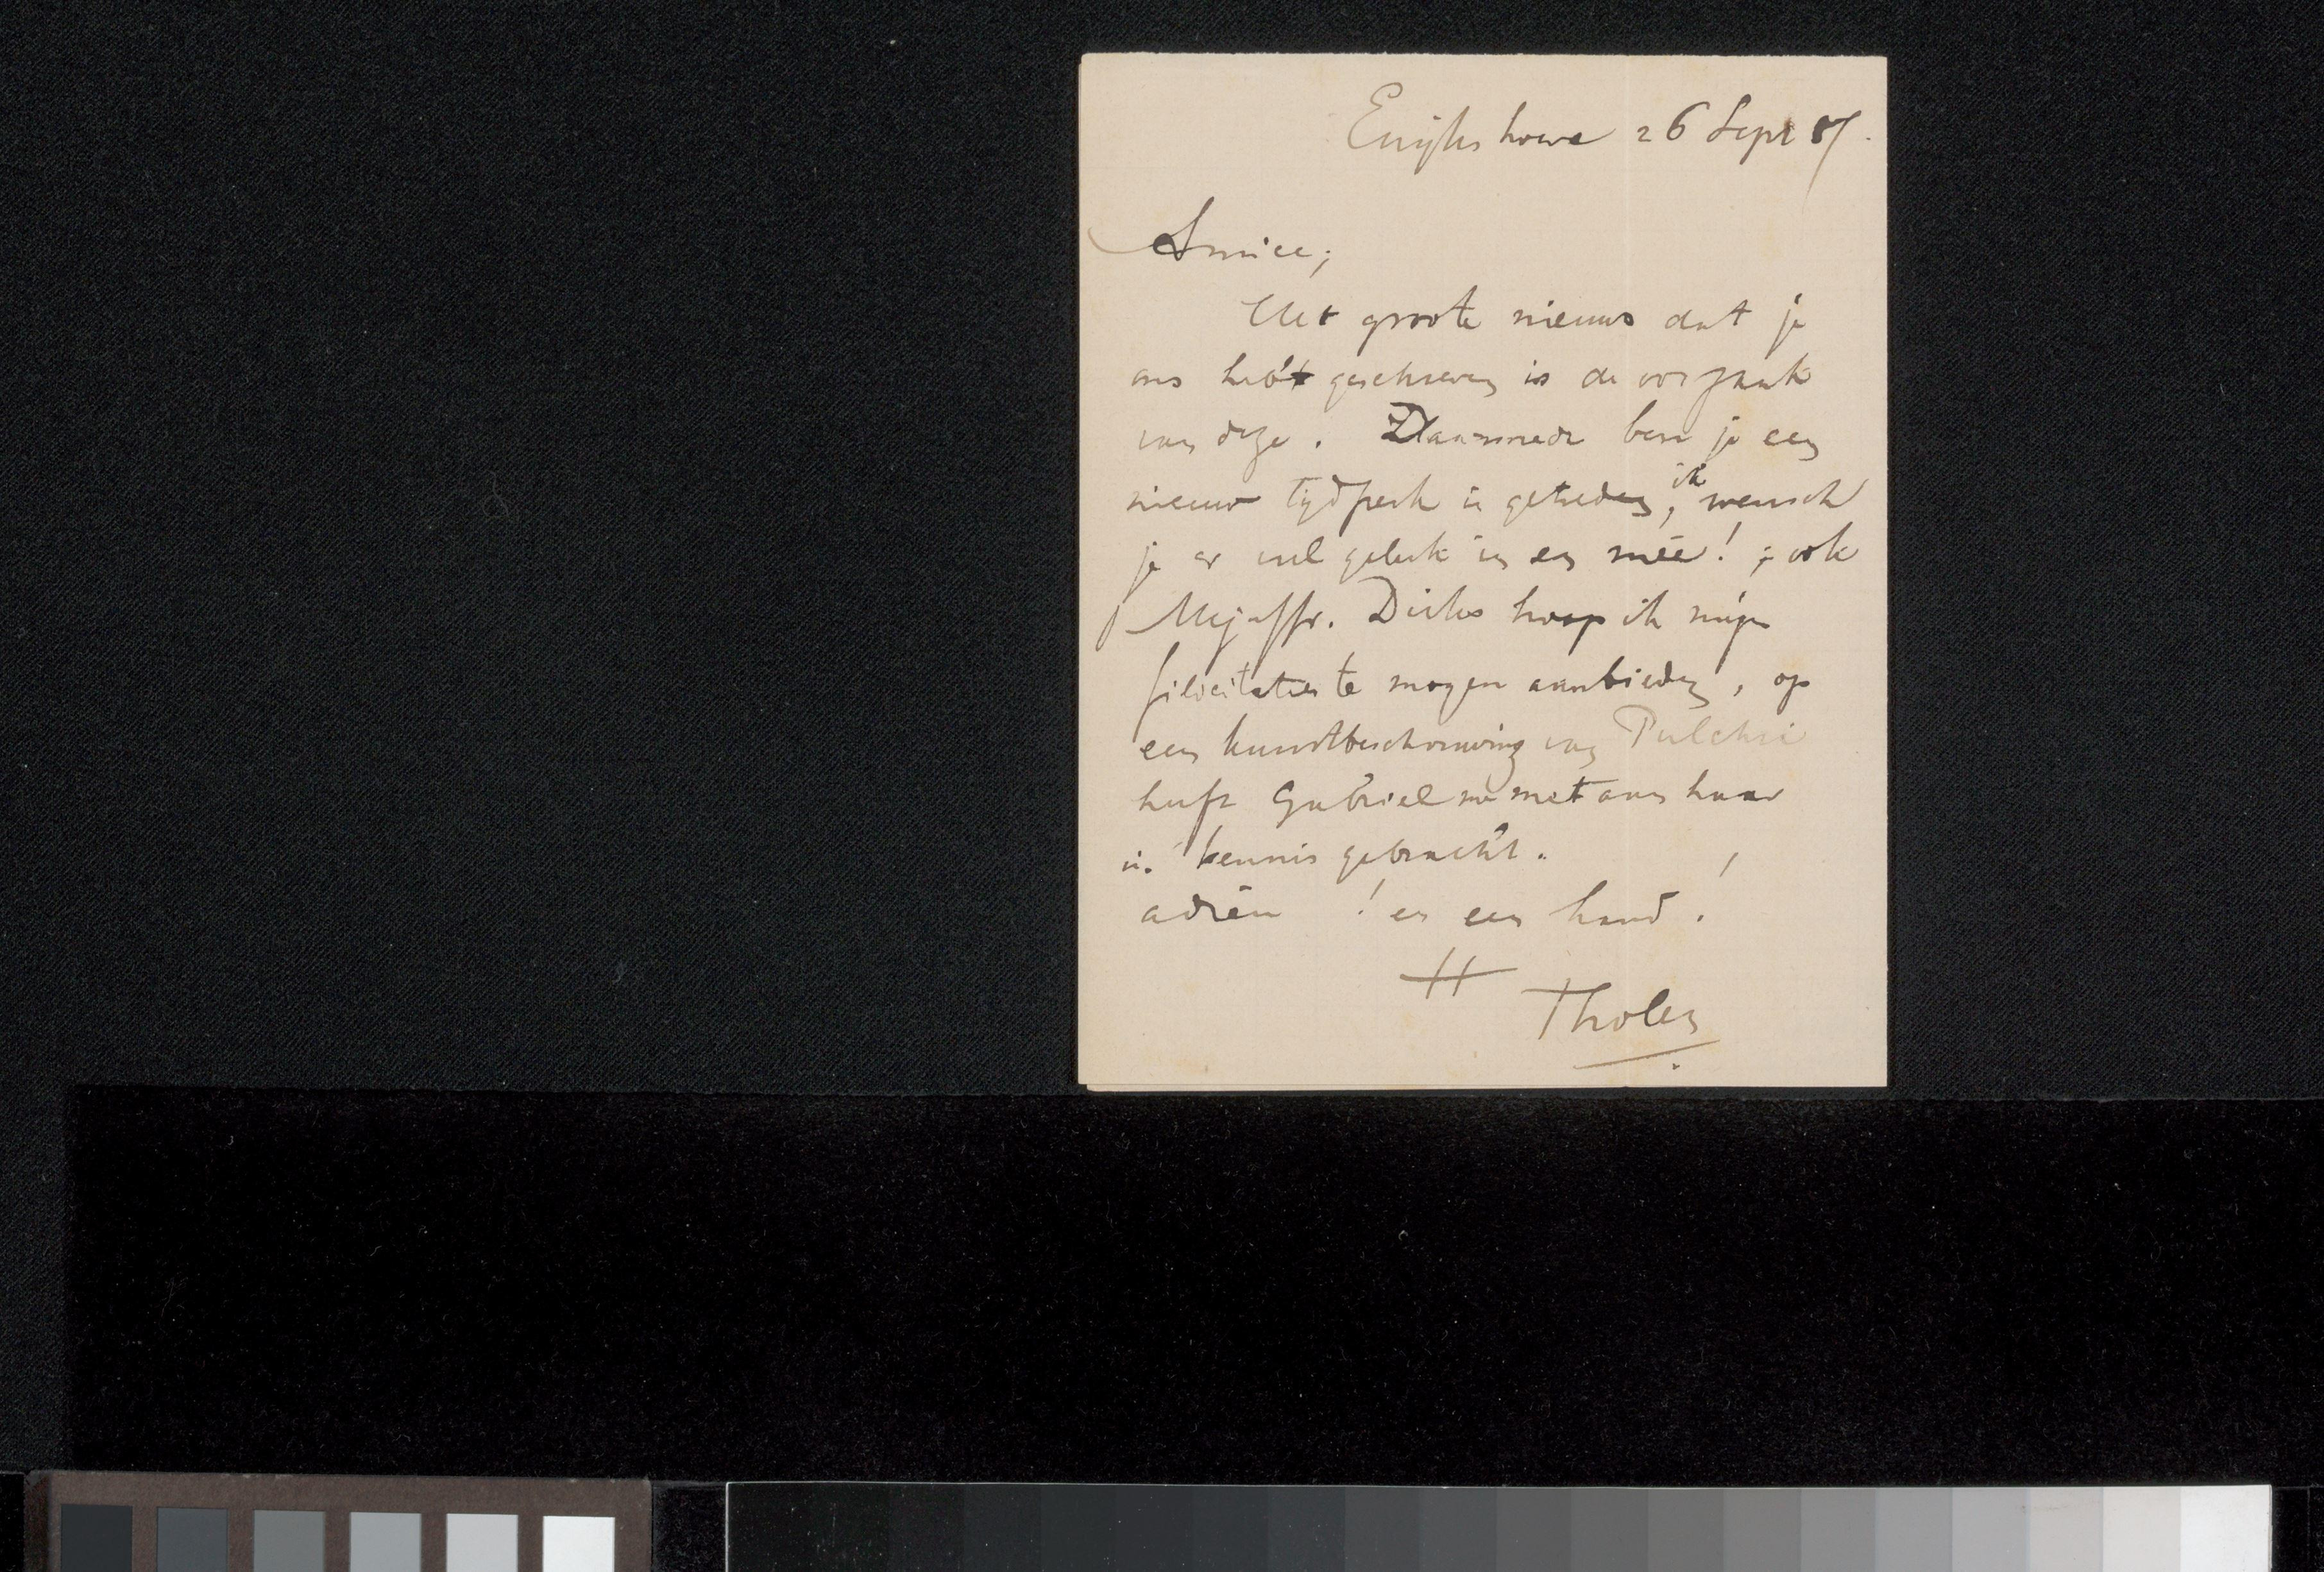 Ewijkshoeve 26 Sept 87.
Amice;
Het groote nieuws dat je
ons hebt geschreven is de oorzaak
van deze. Daarmede ben je een
nieuw tijdperk in getreden, ik wensch
je er veel geluk in en méé! ; ook
Mejuffr. Dirks hoop ik mijn
filicitaties te mogen aanbieden, op
een kunstbeschouwing van Pulchri
heeft Gabriel me met aan haar
in kennis gebracht.
adieu ! en een hand !
Tholen